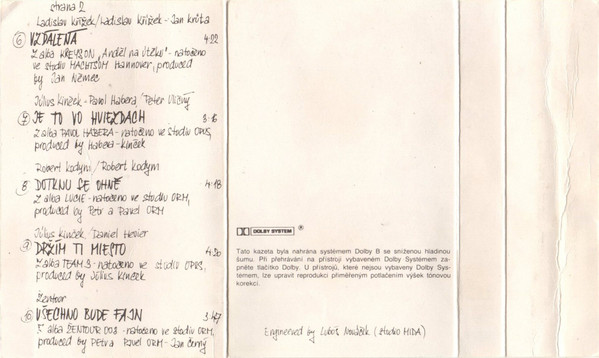 strana 2
Ladislav Křížek/Ladislav Křížek - Jan Krůta
6 VZDÁLENÁ 4:22
Z alba KREYSON „Anděl na útěku" - natočeno
ve studiu MACHTSUM Hannover, produced
by Jan Němec
Július Kinček - Pavol Habera/Peter Uličný
7 JE TO VO HVIEZDACH 3:16
Z alba PAVOL HABERA - natočeno ve studiu OPUS,
produced by Habera - Kinček
Robert Kodym/Robert Kodym
8 DOTKNU SE OHNĚ 4:18
Z alba LUCIE - natočeno ve studiu ORM,
produced by Petr a Pavel ORM
Július Kinček/Daniel Hevier
9 DRŽÍM TI MIESTO 4:20
Z alba TEAM 3 - natočeno ve studiu OPUS,
produced by Július Kinček
Žentour
10 VŠECHNO BUDE FAJN 3:47
Z alba ŽENTOUR 003 - natočeno ve studiu ORM,
produced by PETR a PAVEL ORM - Jan Černý
DOLBY SYSTEM ®
Tato kazeta byla nahrána systémem Dolby B se sníženou hladinou
šumu. Při přehrávání na přístroji vybaveném Dolby Systémem za-
pněte tlačítko Dolby. U přístrojů, které nejsou vybaveny Dolby Sys-
témem, lze upravit reprodukci přiměřeným potlačením výšek tónovou
korekcí.
Engineered by Luboš Nováček (studio MIDA)